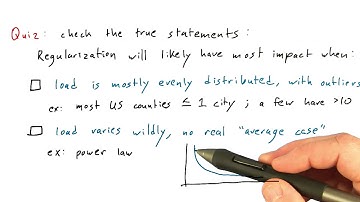 Quiz: check the true statements:
Regularization will likely have most impact when:
load is mostly evenly distributed, with outliers
ex: most US counties ≤ 1 city; a few have >10
load varies wildly, no real "average case"
ex: power law